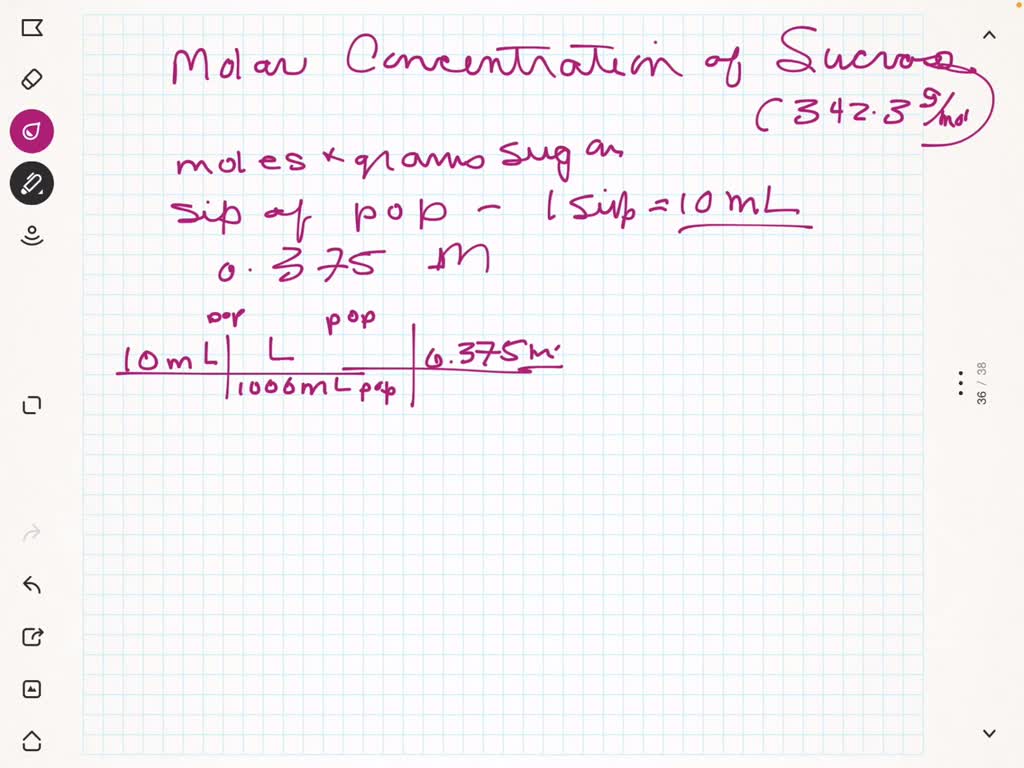 Molar Concentration of Sucrose
(342.3 g/mol)
moles + grams sugar
sip of pop - 1 sip = 10 mL
0.375 M
pop pop
10 mL L 0.375 m
1000 mL pop
36 / 38